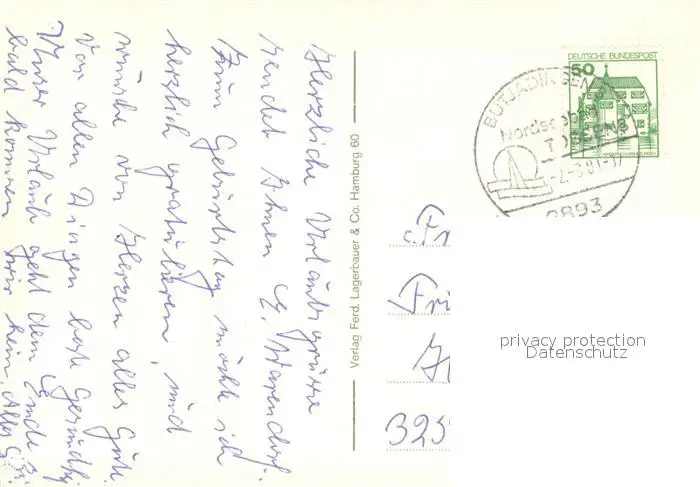 Herzliche Urlaubsgrüsse
sendet Ihnen E. Warendorf.
Zum Geburtstag möchte ich
herzlich gratulieren, und
wünsche von Herzen alles Gute.
Vor allen Dingen beste Gesundh.
Unser Urlaub geht dem Ende z.
bald kommen wir heim. Alles G.
Verlag Ferd. Lagerbauer & Co. Hamburg 60
50
DEUTSCHE BUNDESPOST
BUTJADINGEN
Nordseebad
TOSSENS
2893
Fr
Fri
325
privacy protection
Datenschutz